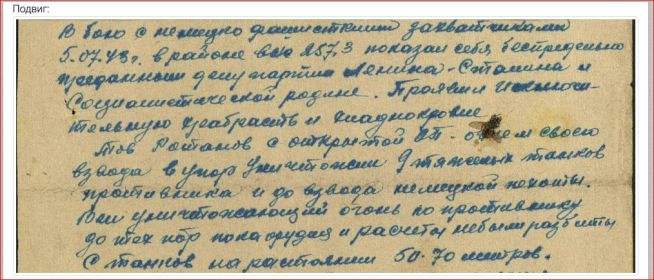 Подвиг:
В бою с немецко фашисткими захватчиками
5.07.43г. в районе выс 257,3 показал себя беспредельно
преданным делу партии Ленина-Сталина и
Социалистической родине. Проявил исключи-
тельную храбрость и хладнокровие
тов Рот­анов с открытой ОП. огнем своего
взвода в упор уничтожил 9 тяжелых танков
противника и до взвода немецкой пехоты.
Вел уничтожающий огонь по противнику
до тех пор пока орудия и расчеты небыли разбиты
с танков на растоянии 50-70 метров.